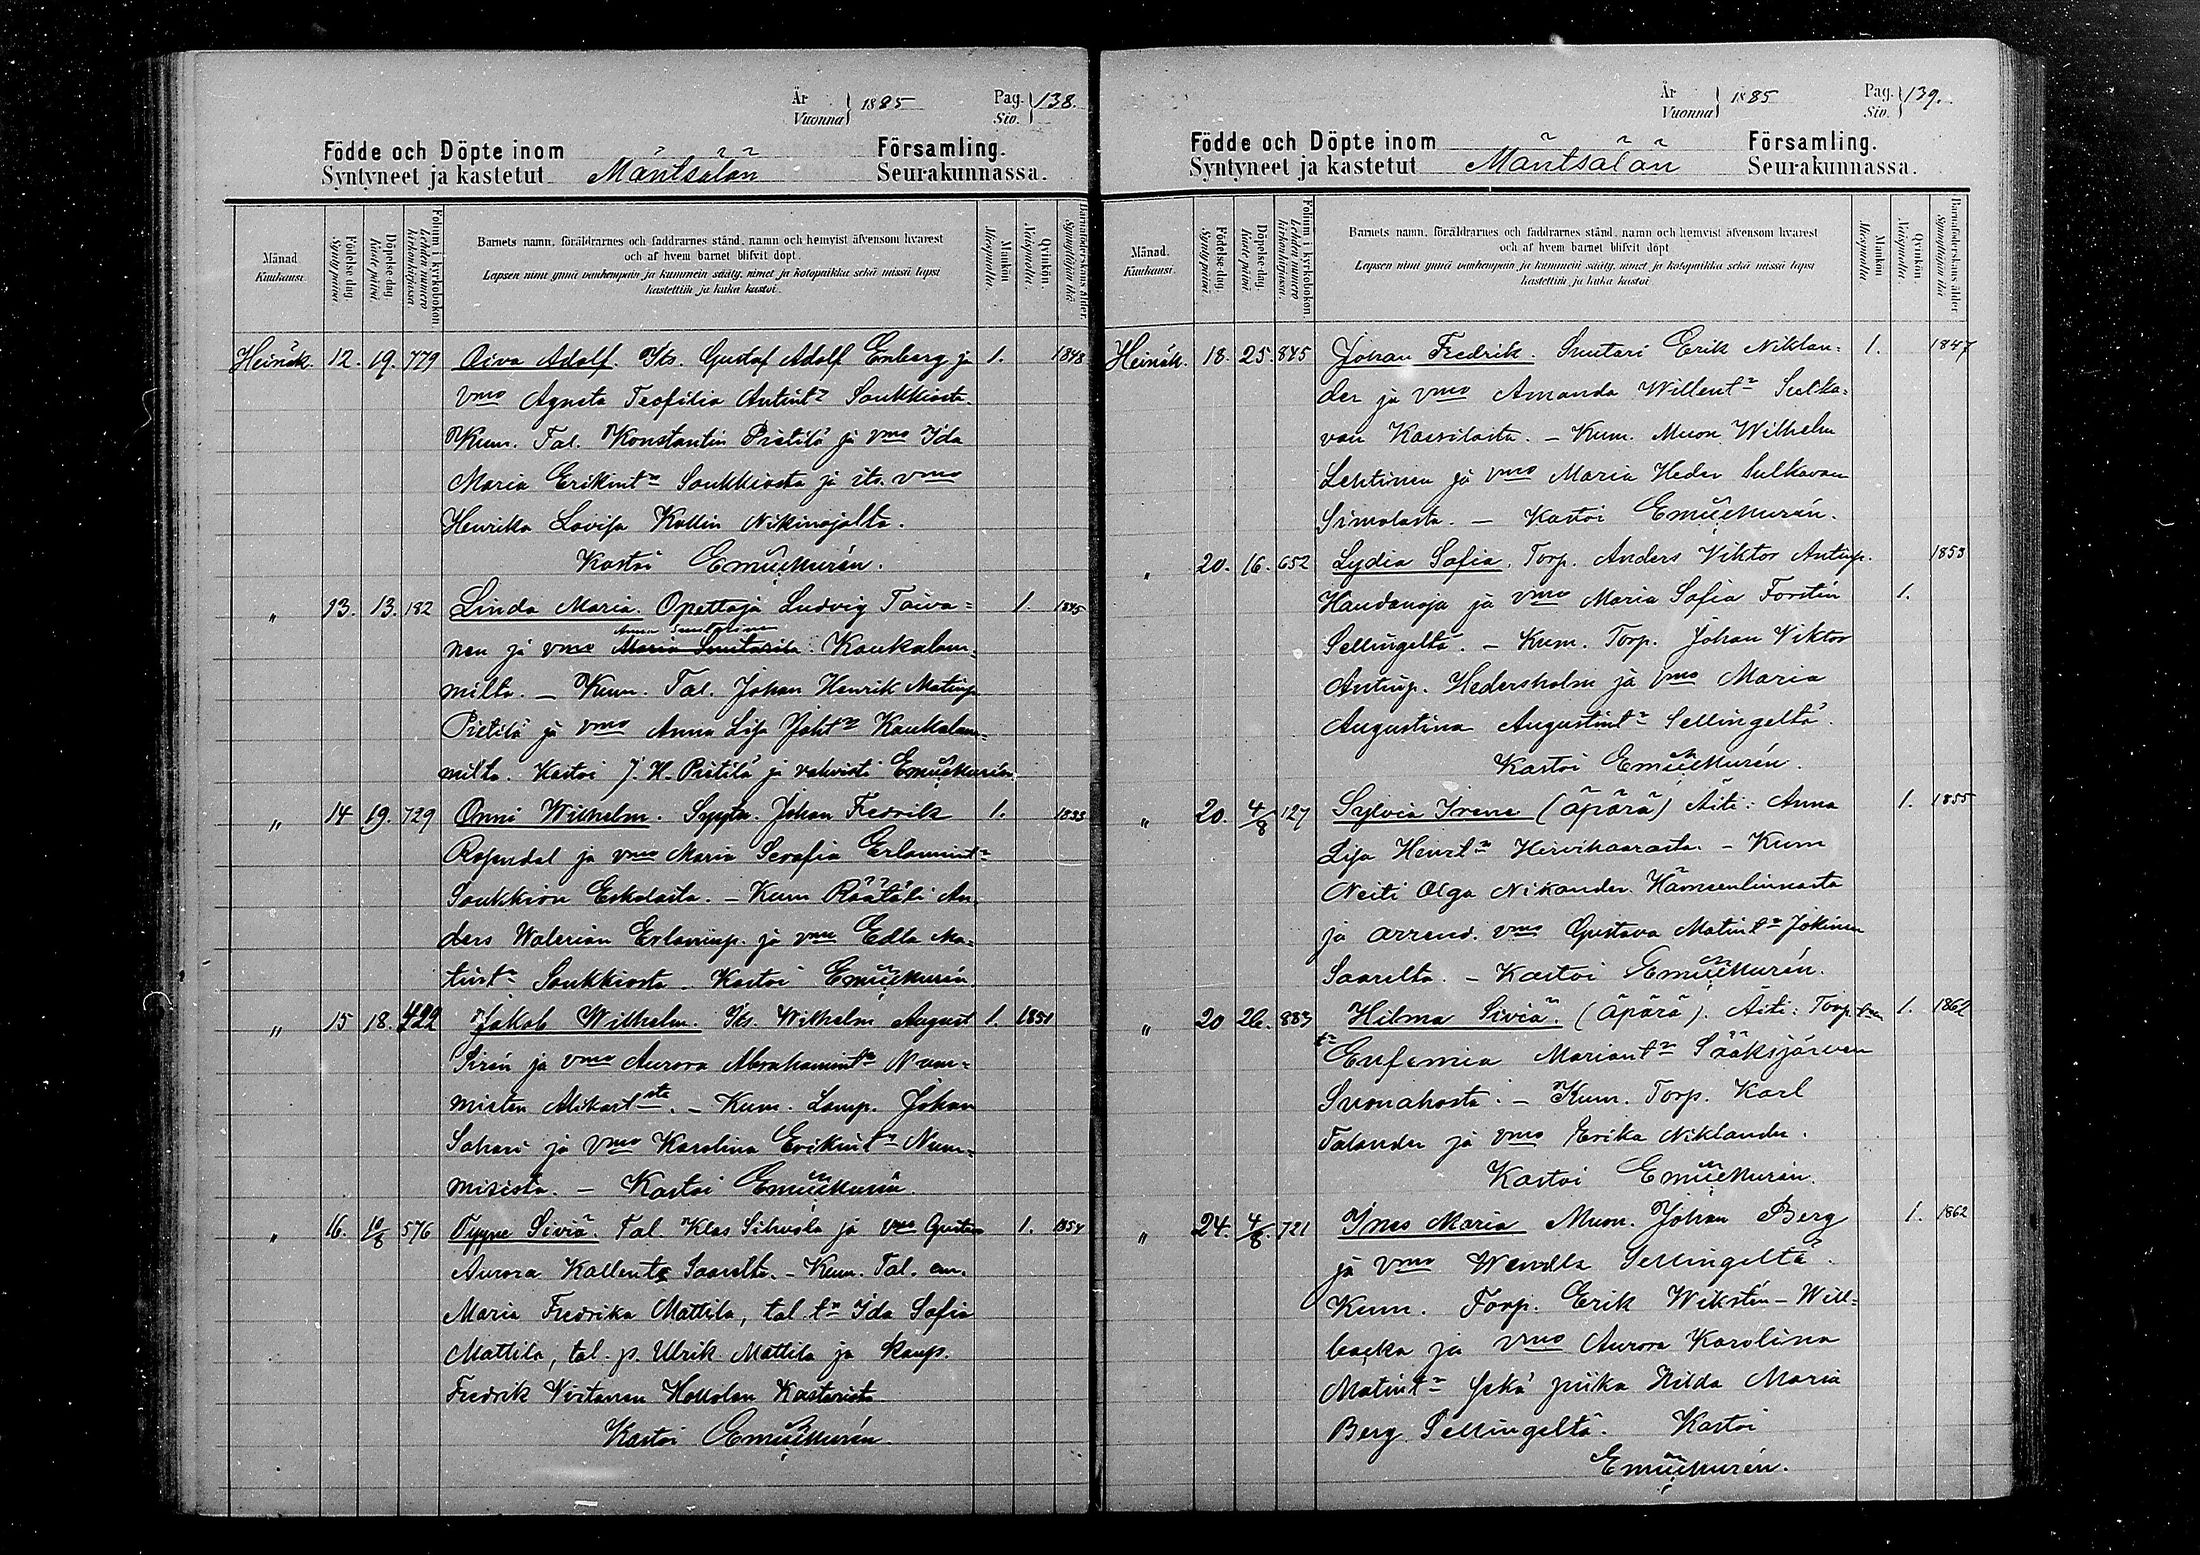 År
Vuonna } 1885 Pag.
Siv. } 138.
Födde och Döpte inom Församling.
Syntyneet ja kastetut Mäntsälän Seurakunnassa.
Månad
Kuukausi.
Födelse-dag
Syntymäpäivä
Döpelse-dag
Kaste päivä
Folium i kyrkoboken
Lehden numero
kirkonkirjassa
Barnets namn, föräldrarnes och faddrarnes stånd, namn och hemvist äfvensom hvarest
och af hvem barnet blifvit döpt.
Lapsen nimi ynnä vanhempain ja kummein sääty, nimet ja kotopaikka sekä missä lapsi
kastettiin ja kuka kastoi.
Mankön.
Miespuolia.
Qvinkön.
Naispuolia.
Barnaföderskans ålder
Synnyttäjän ikä
Heinäk. 12. 19. 779 Oiva Adolf. Its. Gustaf Adolf Enberg ja 1. 1848
vmo Agneta Teofilia Antint:r Soukkiosta.
Kum. Tal. Konstantin Pietilä ja vmo Ida
Maria Erikint:r Soukkiosta ja its. vmo
Henrika Lovisa Kallin Nikinojalta.
Kastoi Em. Murén.
" 13. 13. 182 Linda Maria. Opettaja Ludvig Taiva= 1. 1845
nen ja vmo Maria Kaukalam=
milta. – Kum. Tal. Johan Henrik Matinp.
Pietilä ja vmo Anna Lisa Joht:r Kaukalam=
milta. Kastoi J. H. Pietilä ja vahvisti Em. Murén.
" 14 19. 729 Onni Wilhelm. Johan Fredrik 1. 1833
Rosendal ja vmo Maria Serafia Erlamint:r
Soukkion Eskolasta. – Kum. Räätäli An=
ders Walerian ja vmo Edla Ma=
tint:r Soukkiosta. Kastoi Em. Murén
" 15 18. 422 Jakob Wilhelm. Its. Wilhelm August 1. 1851
Sirén ja vmo Aurora Abrahamint:r Num=
misten – Kum. Lamp. Johan
Sahari ja vmo Karolina Erikint:r Num=
misista. – Kastoi Em. Murén.
" 16. 10/8 576 Tyyne Siviä. Tal. Klas Sihvola ja vmo Gustava 1. 1854
Aurora Kallent:r Saarelta. – Kum. Tal. em.
Maria Fredrika Mattila, tal. t:r Ida Sofia
Mattila, tal. p. Ulrik Mattila ja kaup.
Fredrik Virtanen Hollolan Kastarista
Kastoi Em. Murén.
År
Vuonna } 1885 Pag.
Siv. } 139.
Födde och Döpte inom Församling.
Syntyneet ja kastetut Mäntsälän Seurakunnassa.
Månad.
Kuukausi.
Födelse-dag.
Syntymäpäivä
Döpelse-dag.
Kaste päivä
Folium i kyrkoboken.
Lehden numero
kirkonkirjassa.
Barnets namn, föräldrarnes och faddrarnes stånd, namn och hemvist äfvensom hvarest
och af hvem barnet blifvit döpt.
Lapsen nimi ynnä vanhempain ja kummein sääty, nimet ja kotopaikka sekä missä lapsi
kastettiin ja kuka kastoi.
Mankön.
Miespuolia.
Qvinkön.
Naispuolia.
Barnaföderskans ålder
Synnyttäjän ikä
Heinäk. 18. 25. 845 Johan Fredrik. Suutari Erik Niklan= 1. 1847
der ja vmo Amanda Willent:r Sulka=
van Kassilasta. – Kum. Muon. Wilhelm
Lehtinen ja vmo Maria Heder Sulkavan
Simolasta. – Kastoi Em. Murén.
" 20. 16. 652 Lydia Sofia. Torp. Anders Viktor Antinp. 1853
Haudanoja ja vmo Maria Sofia Forstén 1.
Sellingeltä. – Kum. Torp. Johan Viktor
Antinp. Hedersholm ja vmo Maria
Augustina Augustint:r Sellingeltä.
Kastoi Em. Murén.
" 20. 4/8 127 Sylvia Irene (äpärä) Äiti: Anna 1. 1855
Lisa Henrt:r Hirvihaarasta. – Kum
Neiti Olga Nikander Hämeenlinnasta
ja arrend. vmo Gustava Matint:r Jokinen
Saarelta. – Kastoi Em. Murén.
" 20 26. 883 Hilma Siviä. (äpärä). Äiti: Torp. 1. 1862
t:r Eufemia Mariant:r Sääksjärven
Svonahosta. – Kum. Torp. Karl
Talander ja vmo Erika Niklander.
Kastoi Em. Murén.
" 24. 4/8. 721 Ines Maria Muon. Johan Berg 1. 1862
ja vmo Wendla Sellingeltä.
Kum. Torp. Erik Wikstén-Will=
backa ja vmo Aurora Karolina
Matint:r sekä piika Hilda Maria
Berg Sellingeltä. Kastoi
Em. Murén.